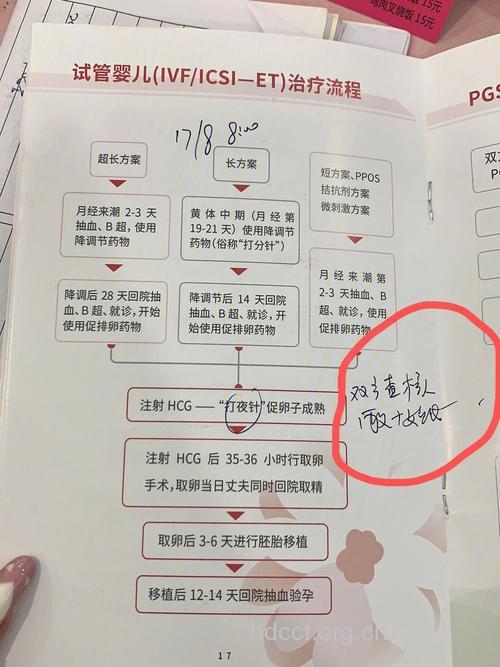 鸡肉叉烧饭 15元
试管婴儿(IVF/ICSI—ET)治疗流程
PGS
17/8 8:00
超长方案
长方案
短方案、PPOS
拮抗剂方案
微刺激方案
月经来潮 2-3 天
抽血、B 超，使用
降调节药物
黄体中期（月经第
19-21 天）使用降调节
药物（俗称“打分针”）
月经来潮第
2-3 天抽血、B
超、就诊，使用
促排卵药物
降调后 28 天回院抽
血、B 超、就诊，开始
使用促排卵药物
降调节后 14 天回院
抽血、B 超、就诊，开
始使用促排卵药物
注射 HCG —— “打夜针”促卵子成熟
注射 HCG 后 35-36 小时行取卵
手术，取卵当日丈夫同时回院取精
取卵后 3-6 天进行胚胎移植
移植后 12-14 天回院抽血验孕
17
hdccf.org.cn